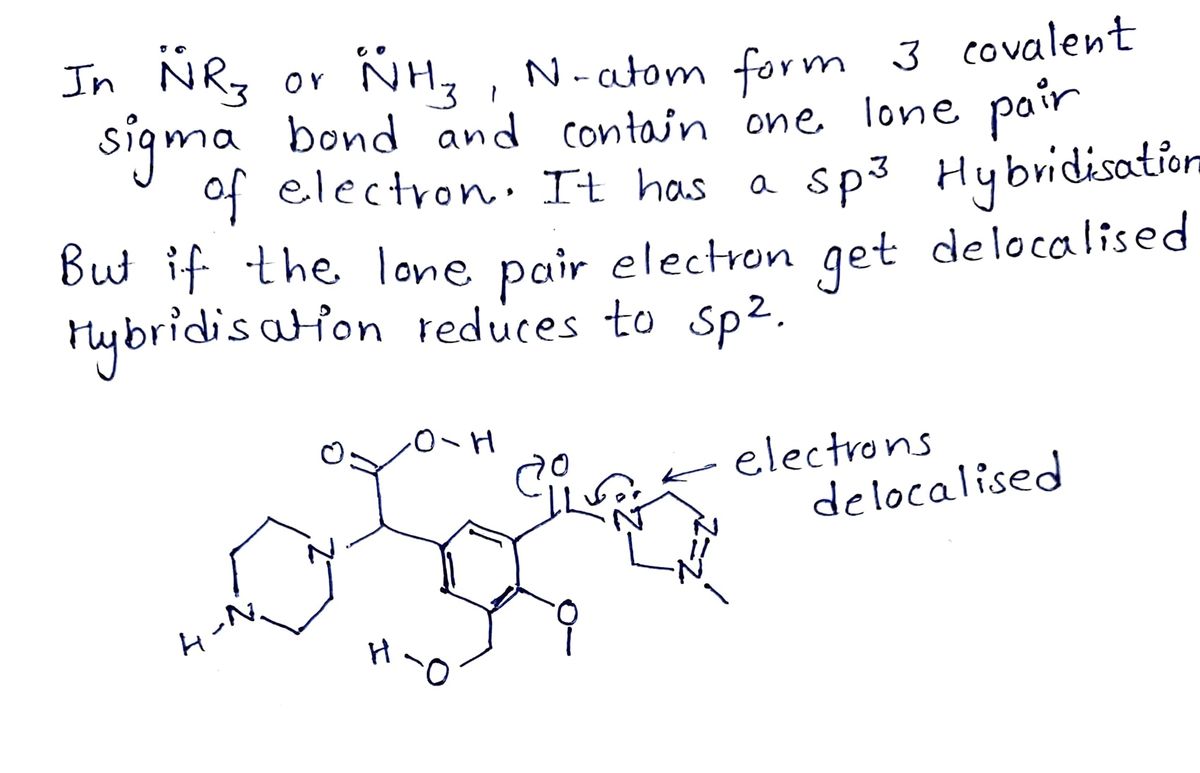 In N̈R₃ or N̈H₃, N-atom form 3 covalent
sigma bond and contain one lone pair
of electron. It has a sp³ Hybridisation
But if the lone pair electron get delocalised
Hybridisation reduces to sp².
O O-H
O electrons
delocalised
N N
N N
H-N O
H-O